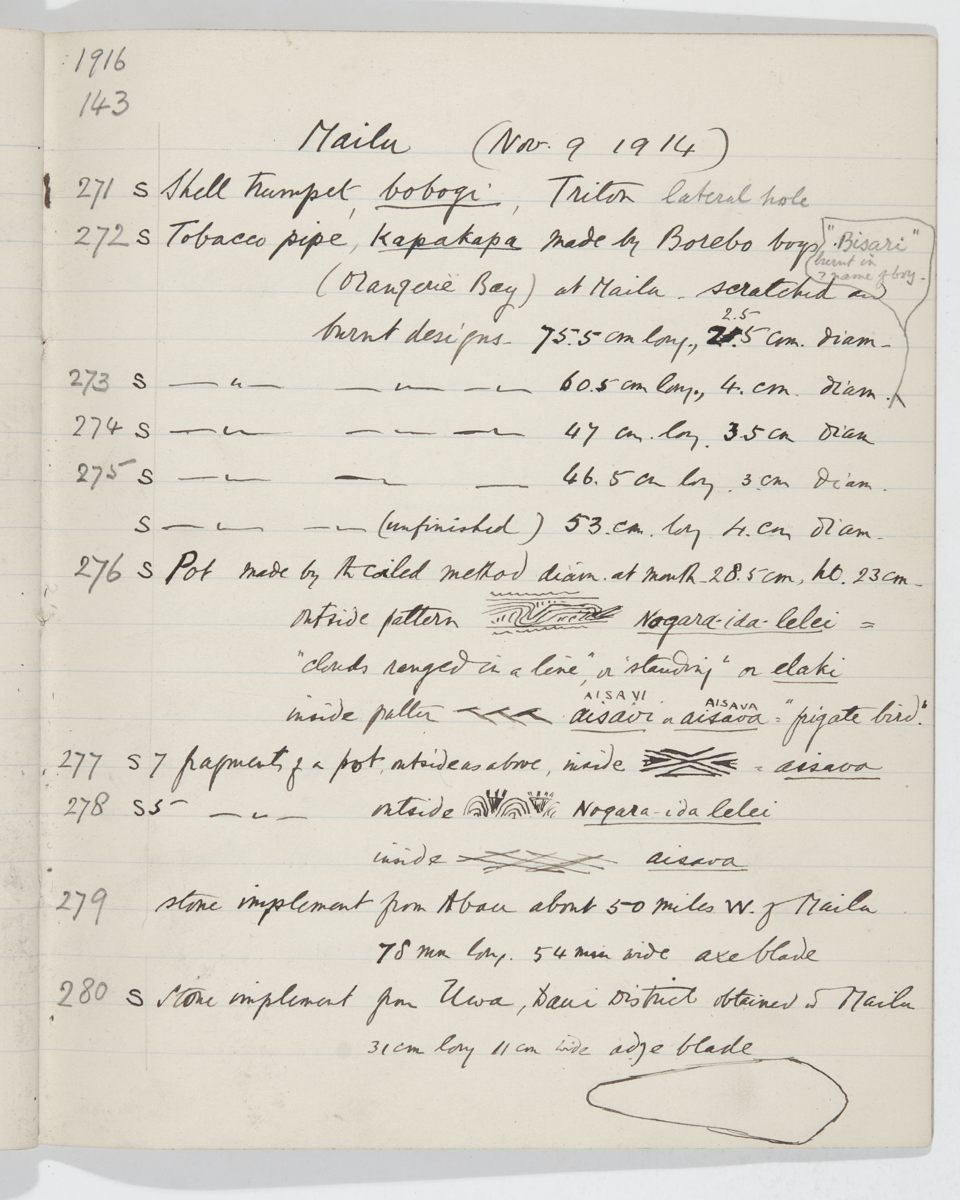 1916
143
Mailu (Nov. 9 1914)
271 S Shell trumpet, bobogi, Triton lateral hole
272 S Tobacco pipe, Kapakapa made by Borebo boys "Bisari"
burnt in
? name of boy.
(Orangerie Bay) at Mailu - scratched and
2.5
burnt designs - 75.5 cm long., 2.5 cm. diam -
273 S —"— —"— — 60.5 cm long., 4. cm. diam.
274 S —"— —"— — 47 cm. long. 3.5 cm diam
275 S —"— — — 46.5 cm long. 3 cm diam.
S —"— — — (unfinished) 53. cm. long 4. cm diam.
276 S Pot made by the coiled method diam. at mouth 28.5 cm, ht. 23 cm
outside pattern Nogara-ida-lelei =
"clouds ranged in a line", or "standing" or elaki
AISAVI AISAVA
inside pattern aisavi or aisava = "frigate bird".
277 S 7 fragments of a pot, outside as above, inside = aisava
278 S 5 —"— outside Nogara-ida lelei
inside aisava
279 stone implement from Abau about 50 miles W. of Mailu
78 mm long. 54 mm wide axe blade
280 S Stone implement from Uwa, Daui District obtained at Mailu
31 cm long 11 cm wide adze blade